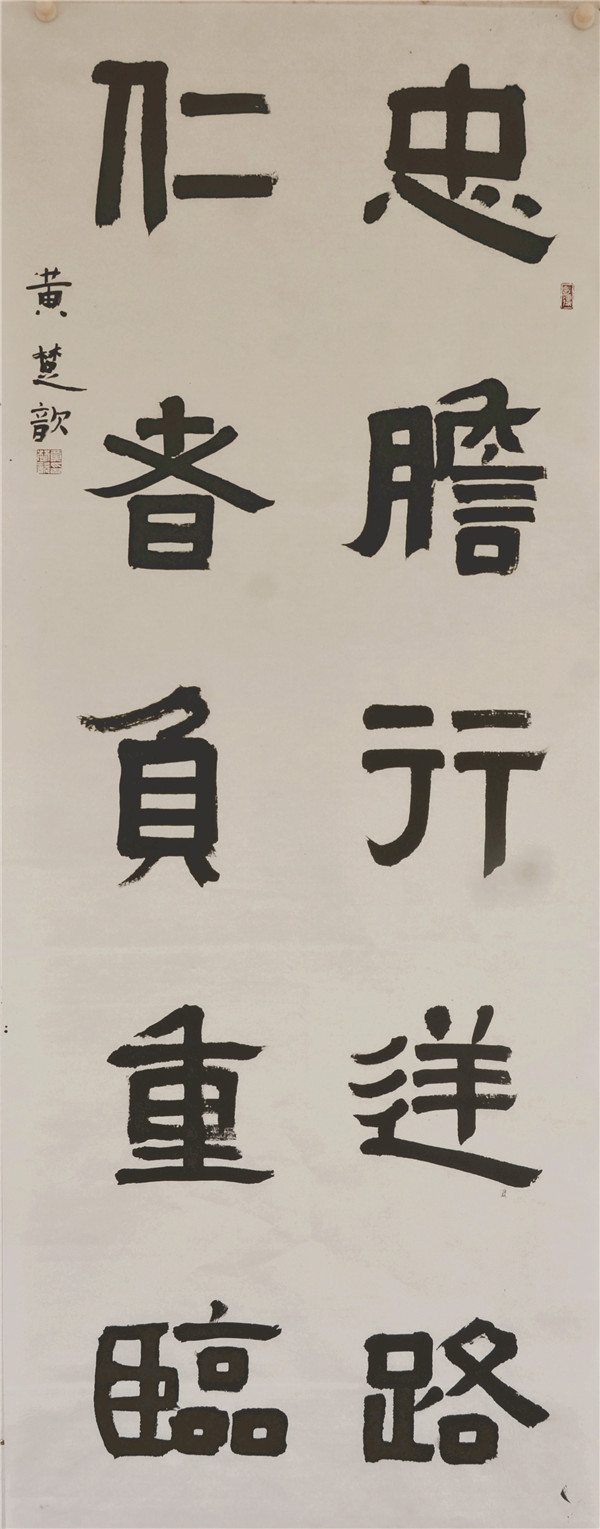 忠膽行路
仁者負重臨
黄楚歆